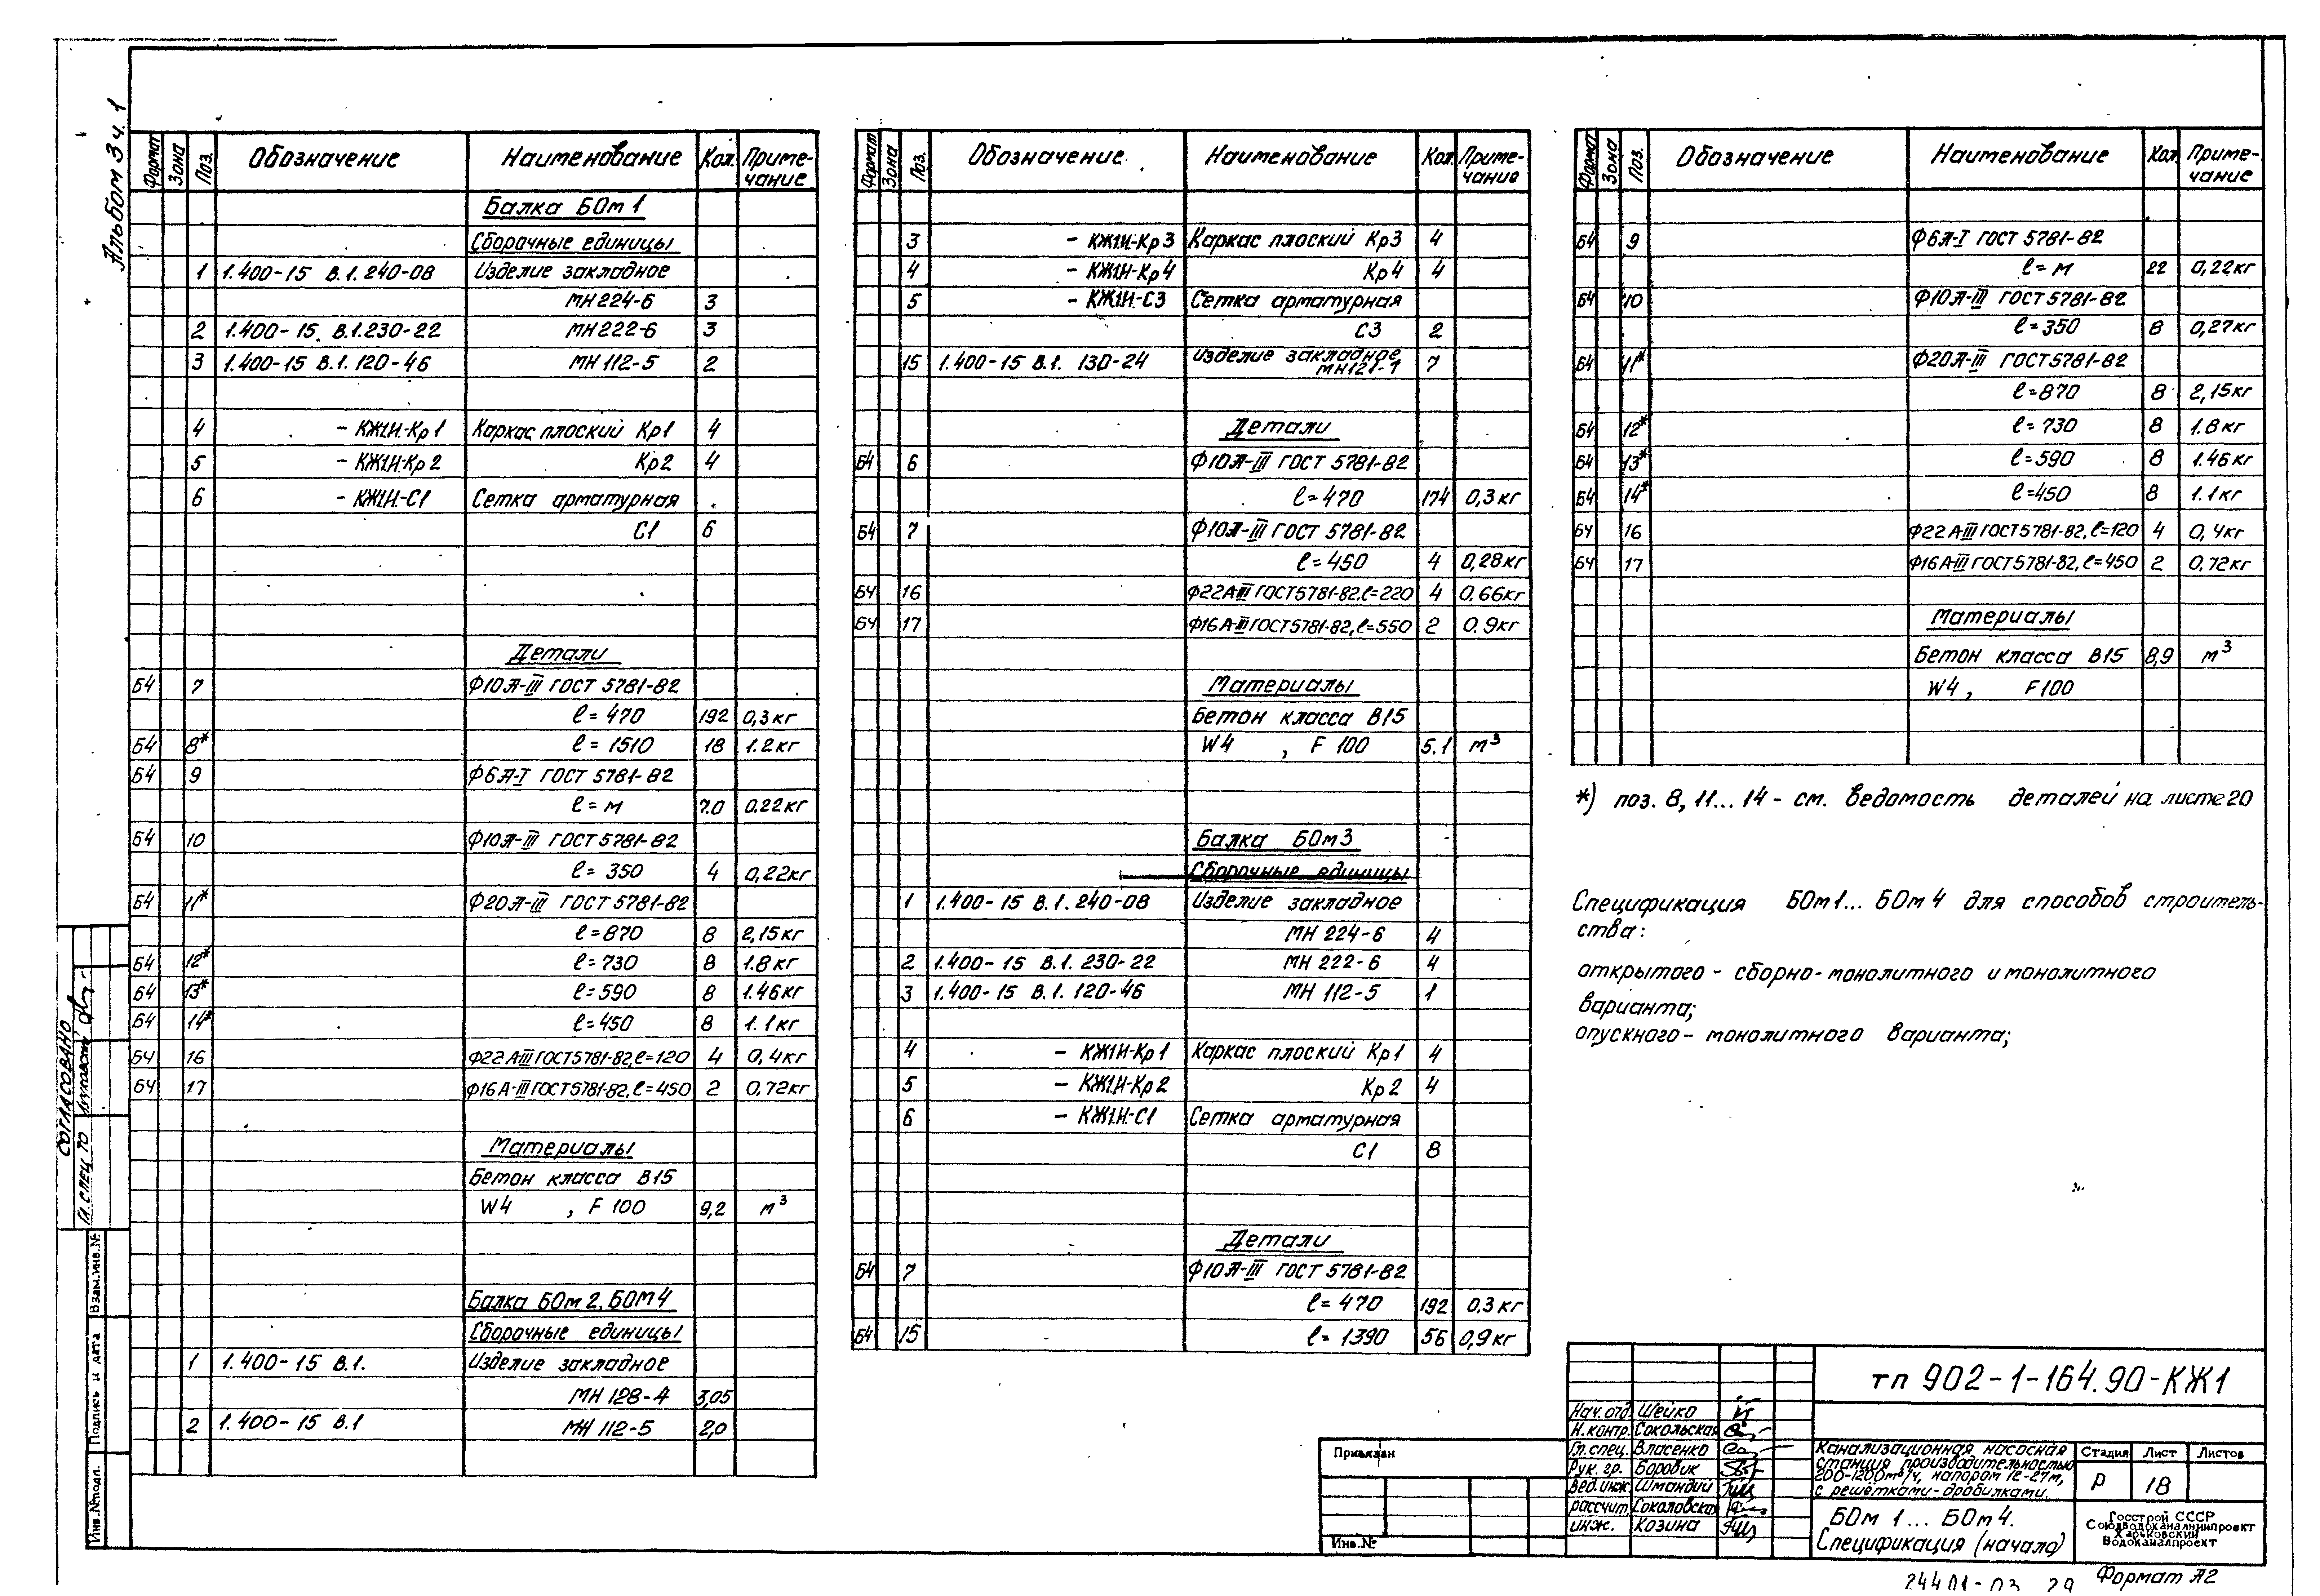 Альбом 3 ч. 1
Формат Зона Поз. Обозначение Наименование Кол. Приме-чание
Балка БОм 1
Сборочные единицы
1 1.400-15 В.1.240-08 Изделие закладное
МН 224-6 3
2 1.400-15. В.1.230-22 МН 222-6 3
3 1.400-15 В.1. 120-46 МН 112-5 2
4 - КЖ1.И.-Кр1 Каркас плоский Кр1 4
5 - КЖ1.И-Кр2 Кр2 4
6 - КЖ1.И-С1 Сетка арматурная
С1 6
Детали
Б4 7 Ф10А-III ГОСТ 5781-82
ℓ = 470 192 0,3кг
Б4 8* ℓ = 1510 18 1.2кг
Б4 9 Ф6А-I ГОСТ 5781-82
ℓ = м 7.0 0.22кг
Б4 10 Ф10А-III ГОСТ 5781-82
ℓ = 350 4 0,22кг
Б4 11* Ф20А-III ГОСТ 5781-82
ℓ = 870 8 2,15кг
Б4 12* ℓ=730 8 1.8кг
Б4 13* ℓ=590 8 1.46кг
Б4 14* ℓ=450 8 1.1кг
Б4 16 Ф22А-III ГОСТ5781-82,ℓ=120 4 0,4кг
Б4 17 Ф16А-III ГОСТ5781-82,ℓ=450 2 0,72кг
Материалы
Бетон класса В15
W4 , F 100 9,2 м³
Балка БОм 2, БОМ 4
Сборочные единицы
1 1.400-15 В.1. Изделие закладное
МН 128-4 3,05
2 1.400-15 В.1 МН 112-5 2,0
Формат Зона Поз. Обозначение Наименование Кол. Приме-чание
3 - КЖ1.И-Кр3 Каркас плоский Кр3 4
4 - КЖ1.И-Кр4 Кр4 4
5 - КЖ1.И-С3 Сетка арматурная
С3 2
15 1.400-15 В.1. 130-24 Изделие закладное
МН121-1 7
Детали
Б4 6 Ф10А-III ГОСТ 5781-82
ℓ=470 174 0,3кг
Б4 7 Ф10А-III ГОСТ 5781-82
ℓ=450 4 0,28кг
Б4 16 Ф22А-III ГОСТ5781-82.ℓ=220 4 0.66кг
Б4 17 Ф16А-III ГОСТ5781-82,ℓ=550 2 0.9кг
Материалы
Бетон класса В15
W4 , F 100 5.1 м³
Балка БОм3
Сборочные единицы
1 1.400-15 В.1.240-08 Изделие закладное
МН 224-6 4
2 1.400-15 В.1. 230-22 МН 222-6 4
3 1.400-15 В.1. 120-46 МН 112-5 1
4 - КЖ1И-Кр1 Каркас плоский Кр1 4
5 - КЖ1.И-Кр2 Кр2 4
6 - КЖ1.И-С1 Сетка арматурная
С1 8
Детали
Б4 7 Ф10А-III ГОСТ 5781-82
ℓ=470 192 0.3кг
Б4 15 ℓ=1390 56 0,9кг
Формат Зона Поз. Обозначение Наименование Кол. Приме-чание
Б4 9 Ф6А-I ГОСТ 5781-82
ℓ=м 22 0,22кг
Б4 10 Ф10А-III ГОСТ5781-82
ℓ=350 8 0,27кг
Б4 11* Ф20А-III ГОСТ5781-82
ℓ=870 8 2,15кг
Б4 12* ℓ=730 8 1.8кг
Б4 13* ℓ=590 8 1.46кг
Б4 14* ℓ=450 8 1.1кг
Б4 16 Ф22А-III ГОСТ5781-82,ℓ=120 4 0,4кг
Б4 17 Ф16А-III ГОСТ5781-82,ℓ=450 2 0,72кг
Материалы
Бетон класса В15 8,9 м³
W4, F100
*) поз. 8, 11... 14 - см. ведомость деталей на листе 20
Спецификация БОм1... БОм4 для способов строитель-
ства:
открытого - сборно-монолитного и монолитного
варианта;
опускного - монолитного варианта;
СОГЛАСОВАНО
Гл.СПЕЦ ТО
Взам.инв.№
Подпись и дата
Инв.№подл.
Привязан
Инв.№
тп 902-1-164.90-КЖ1
Нач.отд. Шейко
Н.контр. Сокольская
Гл.спец. Власенко
Рук. гр. Боровик
Вед.инж. Шмандий
рассчит. Соколовская
инж. Козина
Канализационная насосная
станция производительностью
200-1200м³/ч, напором 12-27м,
с решётками-дробилками.
Стадия Лист Листов
Р 18
БОм 1... БОм 4.
Спецификация (начало)
Госстрой СССР
Союзводоканалниипроект
Харьковский
Водоканалпроект
24401-03 29
Формат А2